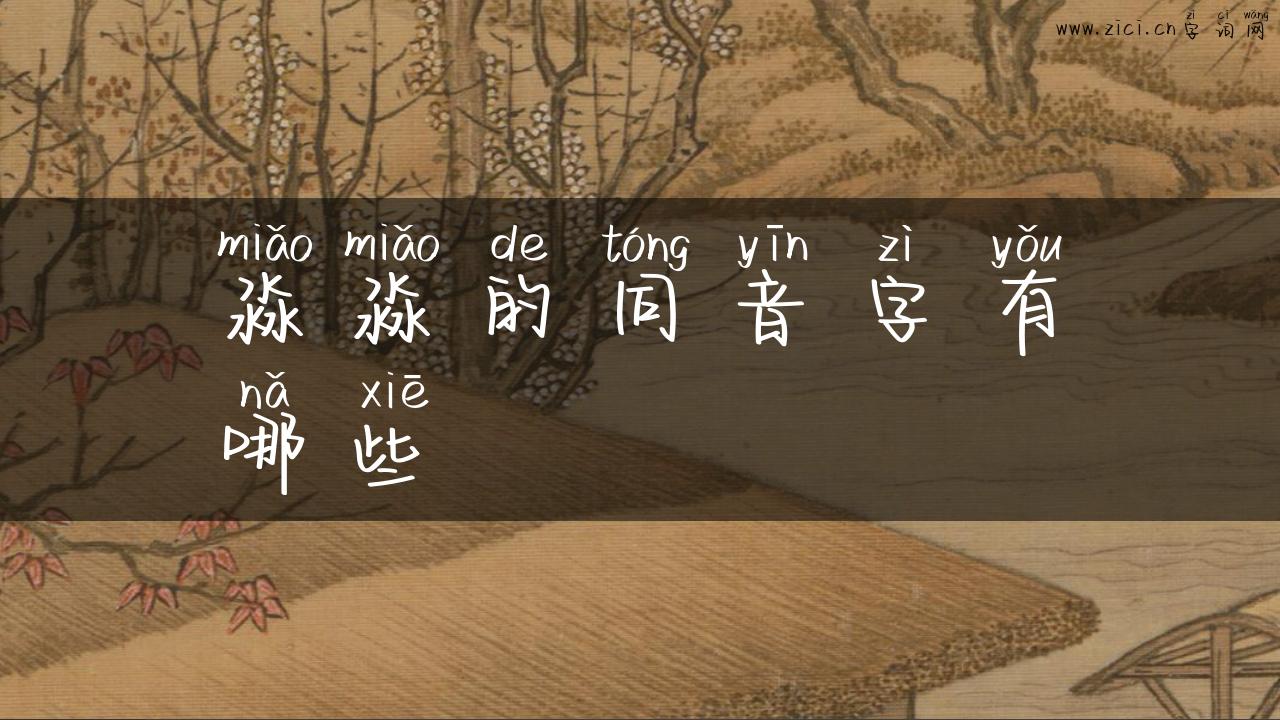 zì cí wǎng
www.zici.cn字词网
miǎo miǎo de tóng yīn zì yǒu
淼淼的同音字有
nǎ xiē
哪些